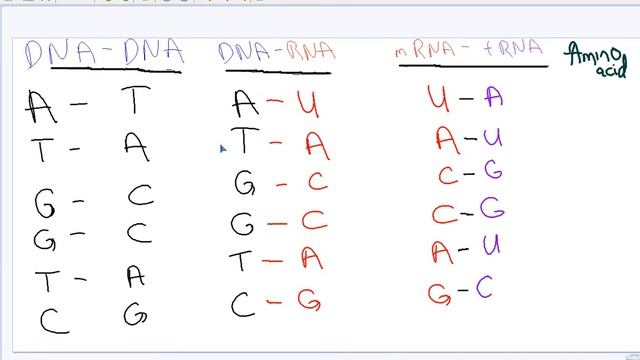 DNA - DNA DNA - RNA mRNA - tRNA Amino
acid
A - T A - U U - A
T - A T - A A - U
G - C G - C C - G
G - C G - C C - G
T - A T - A A - U
C G C - G G - C